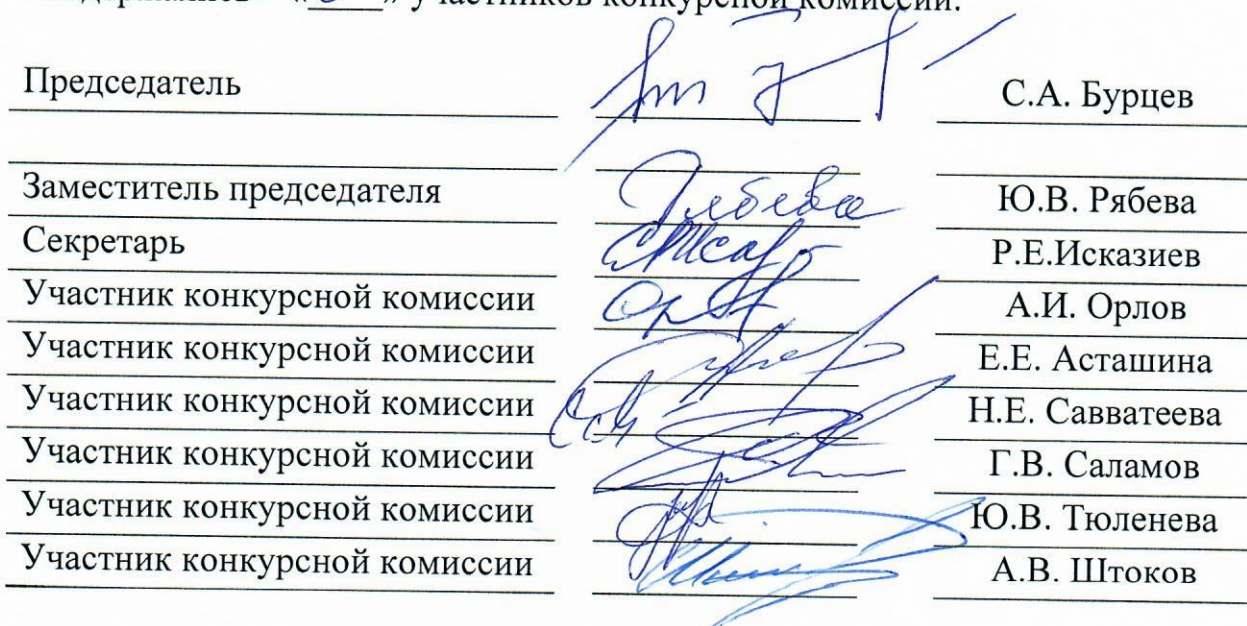 « » участников конкурсной комиссии.
Председатель С.А. Бурцев
Заместитель председателя Рябева Ю.В. Рябева
Секретарь Р.Е.Исказиев
Участник конкурсной комиссии А.И. Орлов
Участник конкурсной комиссии Е.Е. Асташина
Участник конкурсной комиссии Н.Е. Савватеева
Участник конкурсной комиссии Г.В. Саламов
Участник конкурсной комиссии Ю.В. Тюленева
Участник конкурсной комиссии А.В. Штоков